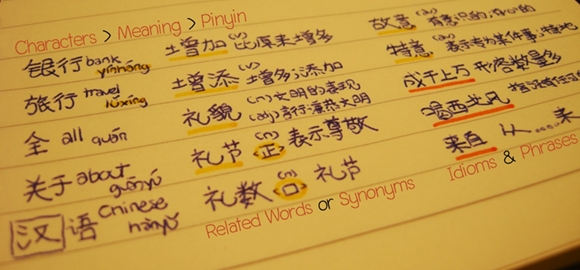 Characters > Meaning > Pinyin
银行 bank
yínháng
旅行 travel
lǚxíng
全 all quán
关于 about
guānyú
汉语 Chinese
hànyǔ
增加 (v) 比原来增多
增添 (v) 增多;添加
礼貌 (n) 文明的表现
(adj) 言行谦恭文明
礼节 (n) 正 表示尊敬
礼数 (n) 口 礼节
Related Words or Synonyms
故意 (adv) 有意识的,存心的
特意 (adv) 表示专为某件事,特地
成千上万 形容数量多
喝西北风
来自 从……来
Idioms & Phrases